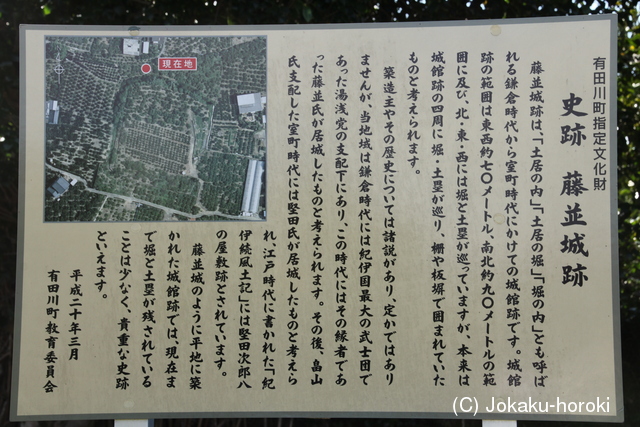 有田川町指定文化財
史跡 藤並城跡
藤並城跡は、「土居の内」「土居の堀」「堀の内」とも呼ば
れる鎌倉時代から室町時代にかけての城館跡です。城館
跡の範囲は東西約七〇メートル、南北約九〇メートルの範
囲に及び、北・東・西には堀と土塁が巡っていますが、本来は
城館跡の四周に堀・土塁が巡り、柵や板塀で囲まれていた
ものと考えられます。
築造主やその歴史については諸説があり、定かではあり
ませんが、当地域は鎌倉時代には紀伊国最大の武士団で
あった湯浅党の支配下にあり、この時代にはその縁者であ
った藤並氏が居城したものと考えられます。その後、畠山
氏支配した室町時代には堅田氏が居城したものと考えら
れ、江戸時代に書かれた「紀
伊続風土記」には堅田次郎八
の屋敷跡とされています。
藤並城のように平地に築
かれた城館跡では、現在ま
で堀と土塁が残されている
ことは少なく、貴重な史跡
といえます。
平成二十年三月
有田川町教育委員会
現在地
(C) Jokaku-horoki